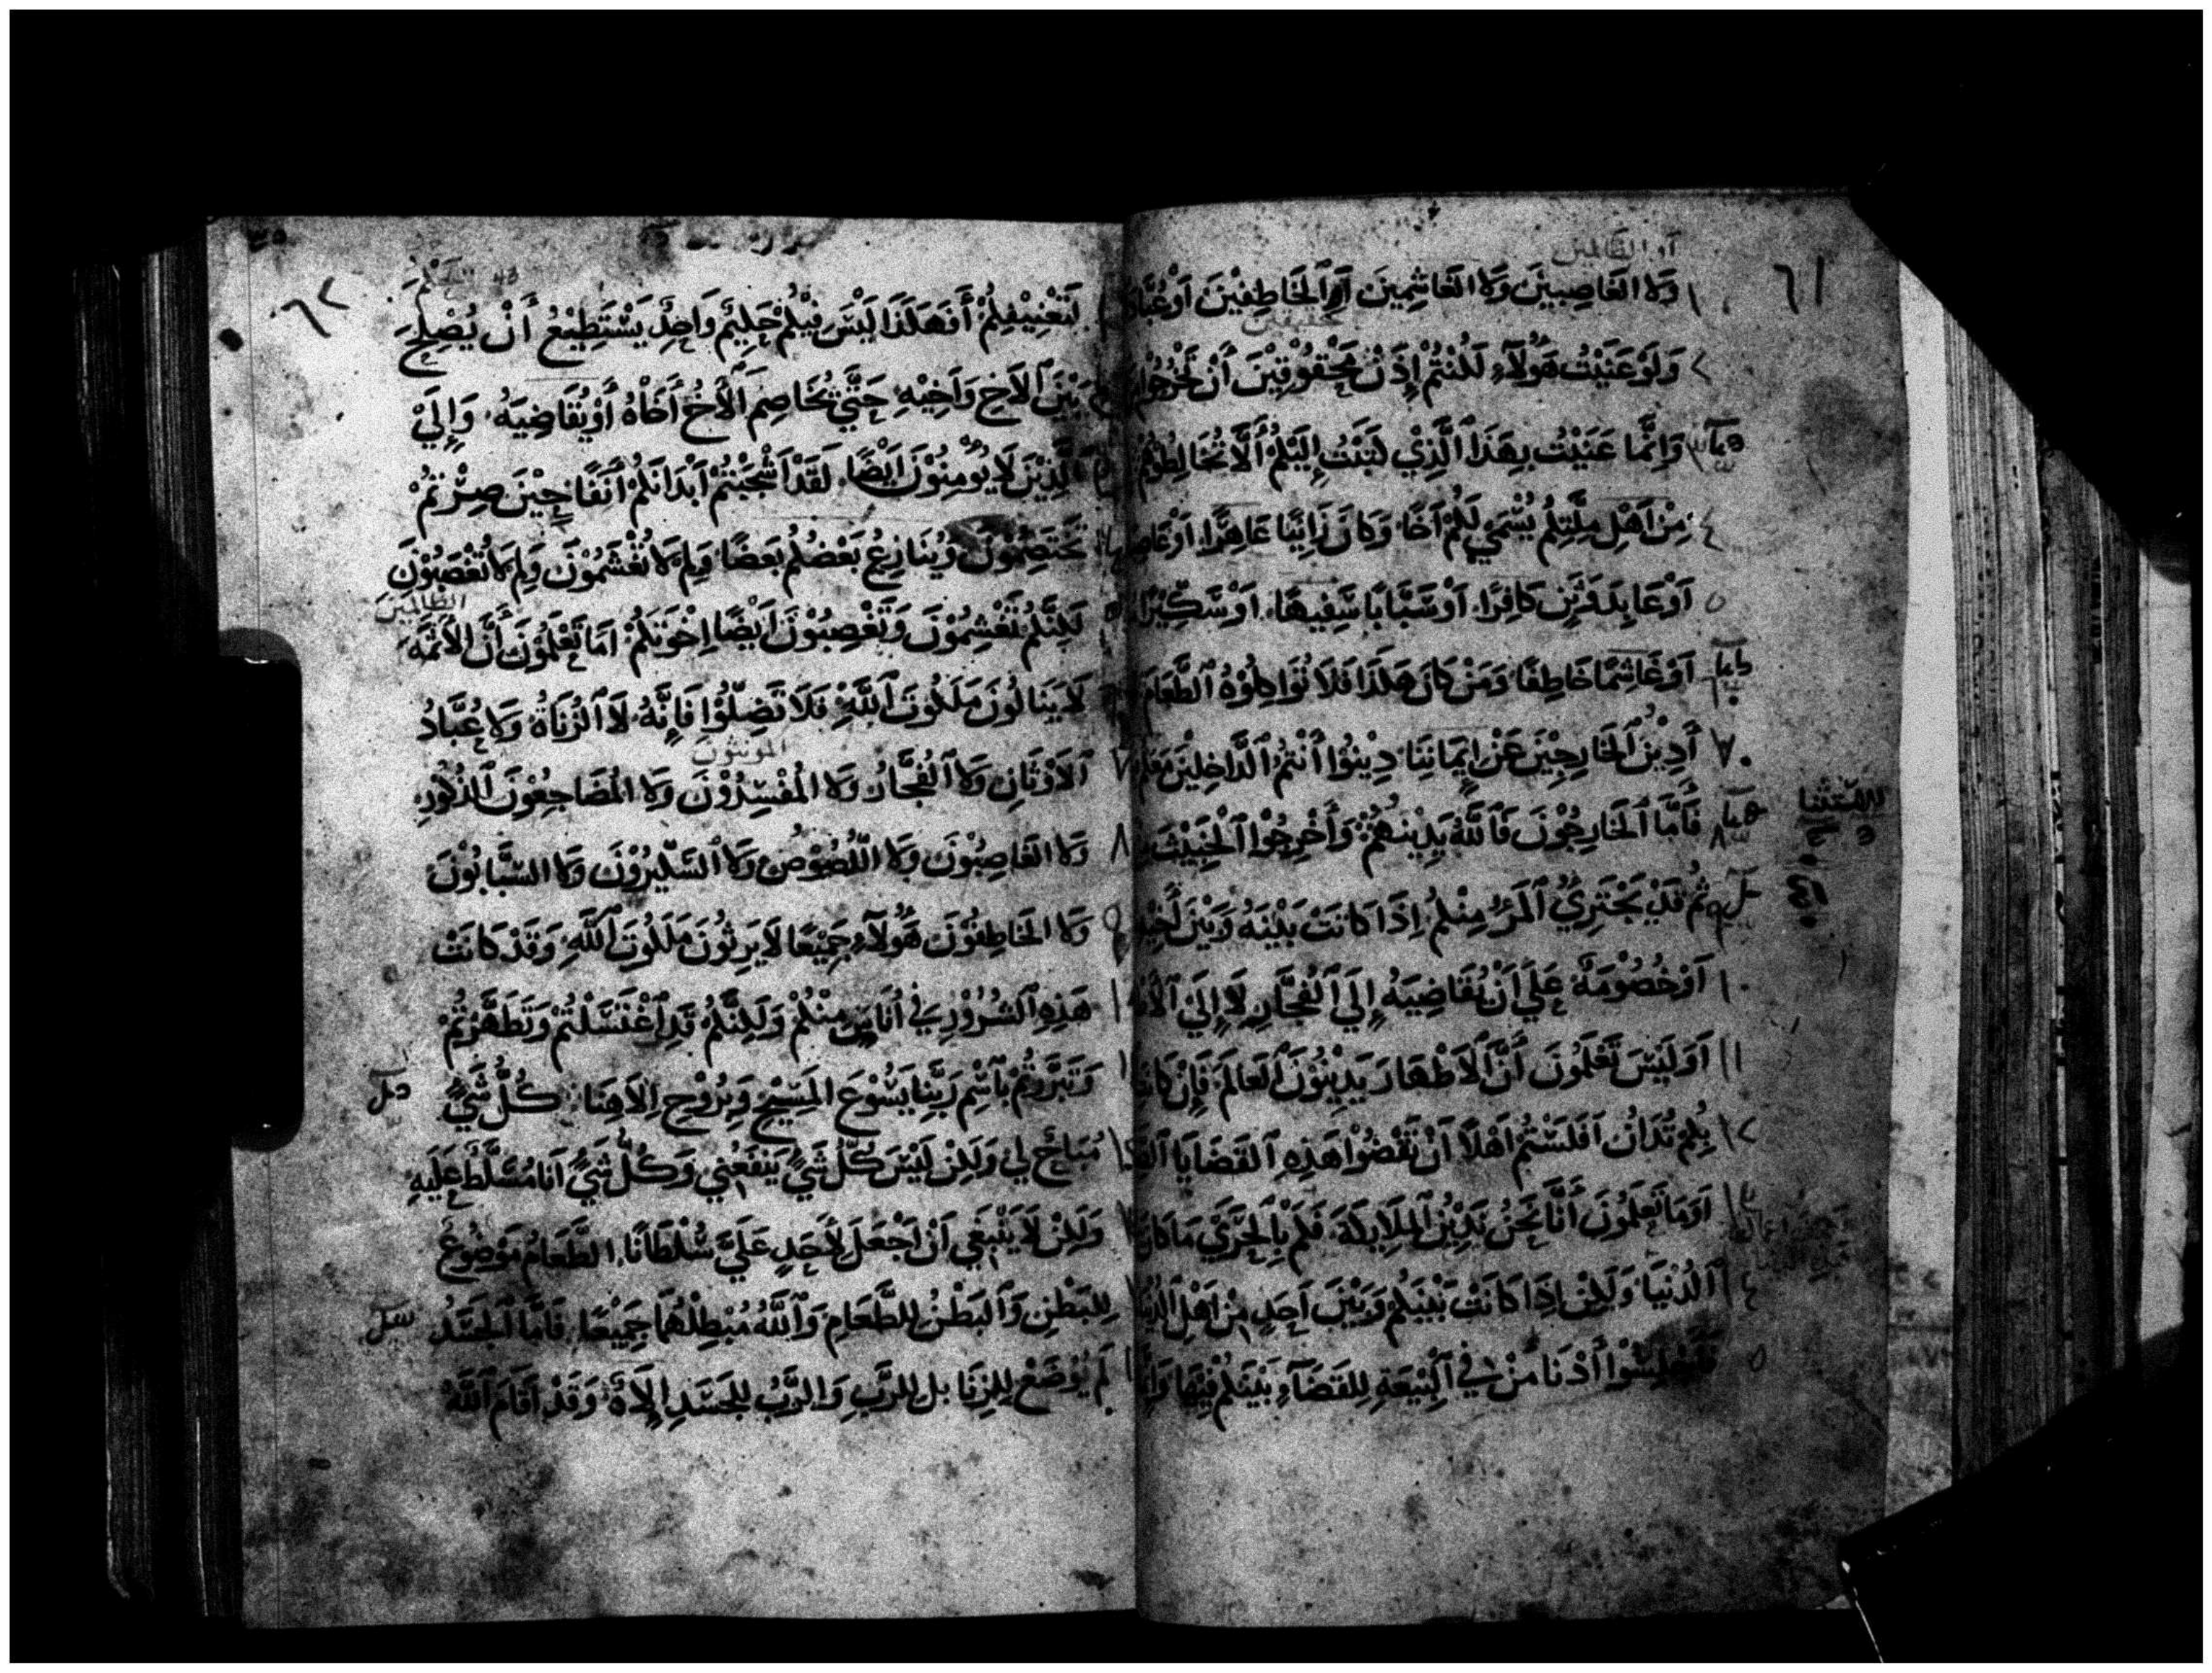 ٦١
أو الظالمين
١ وَلا الغَاصِبِينَ وَلا الغَاشِمِينَ أَوِ ٱلخَاطِفِيْنَ أَوْ عُبَّاد
٢ وَلَوْ عَنَيْتُ هَؤُلَآءِ لَكُنْتُمْ إِذَنْ مَحْقُوْقِيْنَ أَنْ تَخْرُجُوا
٣ وَإِنَّمَا عَنَيْتُ بِهَذَا ٱلَّذِيْ كَتَبْتُ إِلَيْكُمْ أَلَّا تُخَالِطُوْهُمْ
٤ مِنْ اَهْلِ مِلَّتِكُمْ يُسْمَي لَكُمْ اَخًا وَكَانَ زَانِيًا عَاهِرًا، اَوْ غَاصِبًا
٥ اَوْ عَابِدَ وَثَنٍ كَافِرًا، اَوْ سَبَّابًا سَفِيهًا، اَوْ سِكِّيْرًا
٦ اَوْ غَاشِمًا خَاطِفًا وَمَنْ كَانَ هَكَذَا فَلَا تُوَاكِلُوْهُ ٱلطَّعَامَ
٧ أَدِيْنُ ٱلخَارِجِيْنَ عَنْ إِيمَانِنَا دِيْنُوُا أَنْتُمُ ٱلدَّاخِلِيْنَ مَعَكُمْ
٨ فَأَمَّا ٱلخَارِجُوْنَ فَٱللَّهُ يَدِيْنُهُمْ وَأَخْرِجُوْا ٱلْخَبِيْثَ
ثُمَّ قَدْ يَجْتَرِيُ ٱلمَرْءُ مِنْكُمْ إِذَا كَانَتْ بَيْنَهُ وَبَيْنَ أَخِيْهِ
١٠ اَوْ خُصُوْمَةٌ عَلَي أَنْ يُقَاضِيَهُ إِلَي ٱلفُجَّارِ لَا إِلَي ٱلأَطْهَارِ
١١ اَوَلَيْسَ تَعْلَمُونَ أَنَّ ٱلأَطْهَارَ يَدِيْنُوْنَ ٱلعَالَمَ فَإِنْ كَانَ
١٢ بِكُمْ تُدَانُ اَفَلَسْتُمْ اَهْلًا اَنْ تَقْضُوْا هَذِهِ ٱلقَضَايَا
١٣ اَوَمَا تَعْلَمُونَ أَنَّا نَحْنُ نَدِيْنُ ٱلمَلَايِكَةَ، فَكَمْ بِٱلحَرَيِّ مَا كَانَ
١٤ ٱلدُنْيَا وَلَكِنْ إِذَا كَانَتْ بَيْنَكُمْ وَبَيْنَ اَحَدٍ مِنْ اَهْلِ ٱلدُنْيَا
فَأَجْلِسُوْا أَدْنَا مَنْ فِي ٱلْبَيْعَةِ لِلقَضَآءِ بَيْنَكُمْ فِيْهَا
٦٢
لِتَعْنِيْفِكُمْ أَفَهَكَذَا لَيْسَ فِيْكُمْ حَلِيْمٌ وَاحِدٌ يَسْتَطِيْعُ أَنْ يُصْلِحَ
بَيْنَ ٱلأَخِ وَأَخِيْهِ حَتَّي يُخَاصِمَ ٱلأَخُ أَخَاهُ أَوْ يُقَاضِيَهُ، وَإِلَيْ
ٱلَّذِيْنَ لَا يُوْمِنُوْنَ اَيْضًا، لَقَدْ اَشْجَبْتُمْ اَبْدَانَكُمْ اَنَفًا حِيْنَ صِرْتُمْ
تَخْتَصِمُونَ وَيُنَازِعُ بَعْضُكُمْ بَعْضًا وَلِمَ لَا تُغْشَمُوْنَ وَلِمَ لَا تُغْصَبُوْنَ
الظالمين
لَكِنَّكُمْ تَغْشِمُوْنَ وَتَغْصِبُوْنَ اَيْضًا اِخْوَتَكُمْ اَمَا تَعْلَمُوْنَ أَنَّ الأَثَمَةَ
لَا يَنَالُونَ مَلَكُوتَ ٱللَّهِ فَلَا تَضِلُّوْا فَإِنَّهُ لَا ٱلزُنَاةُ وَلا عُبَّادُ
٧ ٱلاَوْثَانِ وَلا ٱلفُجَّارُ وَلا المُفْسِدُوْنَ وَلا المُضَاجِعُوْنَ ٱلذُكُورَ
٨ وَلا الغَاصِبُوْنَ وَلا اللُّصُوْصُ وَلا السِّكِّيْرُوْنَ وَلا السَّبَّابُوْنَ
٩ وَلا الخَاطِفُوْنَ هَؤُلَآءِ جَمِيْعًا لَا يَرِثُوْنَ مَلَكُوْتَ ٱللَّهِ وَقَدْ كَانَتْ
هَذِهِ ٱلشُرُوْرُ فِي أُنَاسٍ مِنْكُمْ وَلَكِنَّكُمْ قَدِ ٱغْتَسَلْتُمْ وَتَطَهَّرْتُمْ
وَتَبَرَّرْتُمْ بِٱسْمِ رَبِّنَا يَسُوْعَ المَسِيْحِ وَبِرُوْحِ اِلَاهِنَا، كُلُّ شَيٍّ
مُبَاحٌ لِي وَلَكِنْ لَيْسَ كُلُّ شَيٍّ يَنْفَعُنِي وَكُلُّ شَيٍّ اَنَا مُسَلَّطٌ عَلَيْهِ
وَلَكِنْ لَا يَنْبَغِي اَنْ اَجْعَلَ لِأَحَدٍ عَلَيَّ سُلْطَانًا، الطَّعَامُ مَوْضُوعٌ
لِلبَطْنِ وَٱلبَطْنُ لِلطَّعَامِ وَٱللَّهُ مُبْطِلْهُمَا جَمِيْعًا، فَأَمَّا ٱلجَسَدُ
لَمْ يُوْضَعْ لِلزِنَا بل لِلرَّبِ وَالرَّبُ لِلجَسَدِ وَقَدْ اَقَامَ ٱللَّهُ